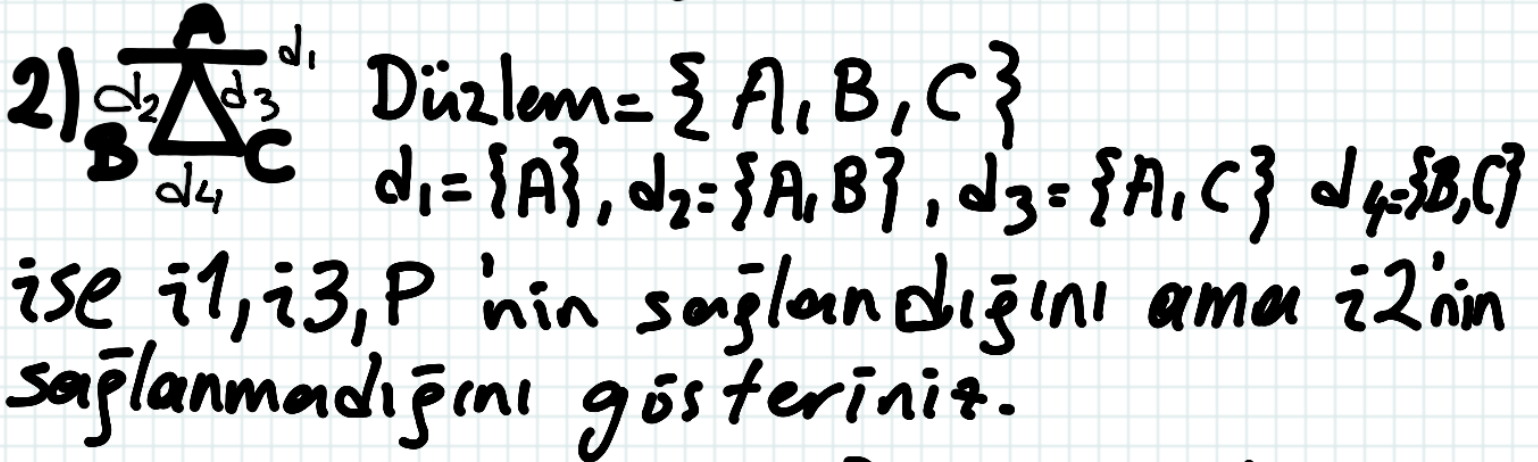 2) A d₁ d₂ d₃ B C d₄ Düzlem={A,B,C}
d₁={A}, d₂={A,B}, d₃={A,C} d₄={B,C}
ise i1,i3,P'nin sağlandığını ama i2'nin
sağlanmadığını gösteriniz.